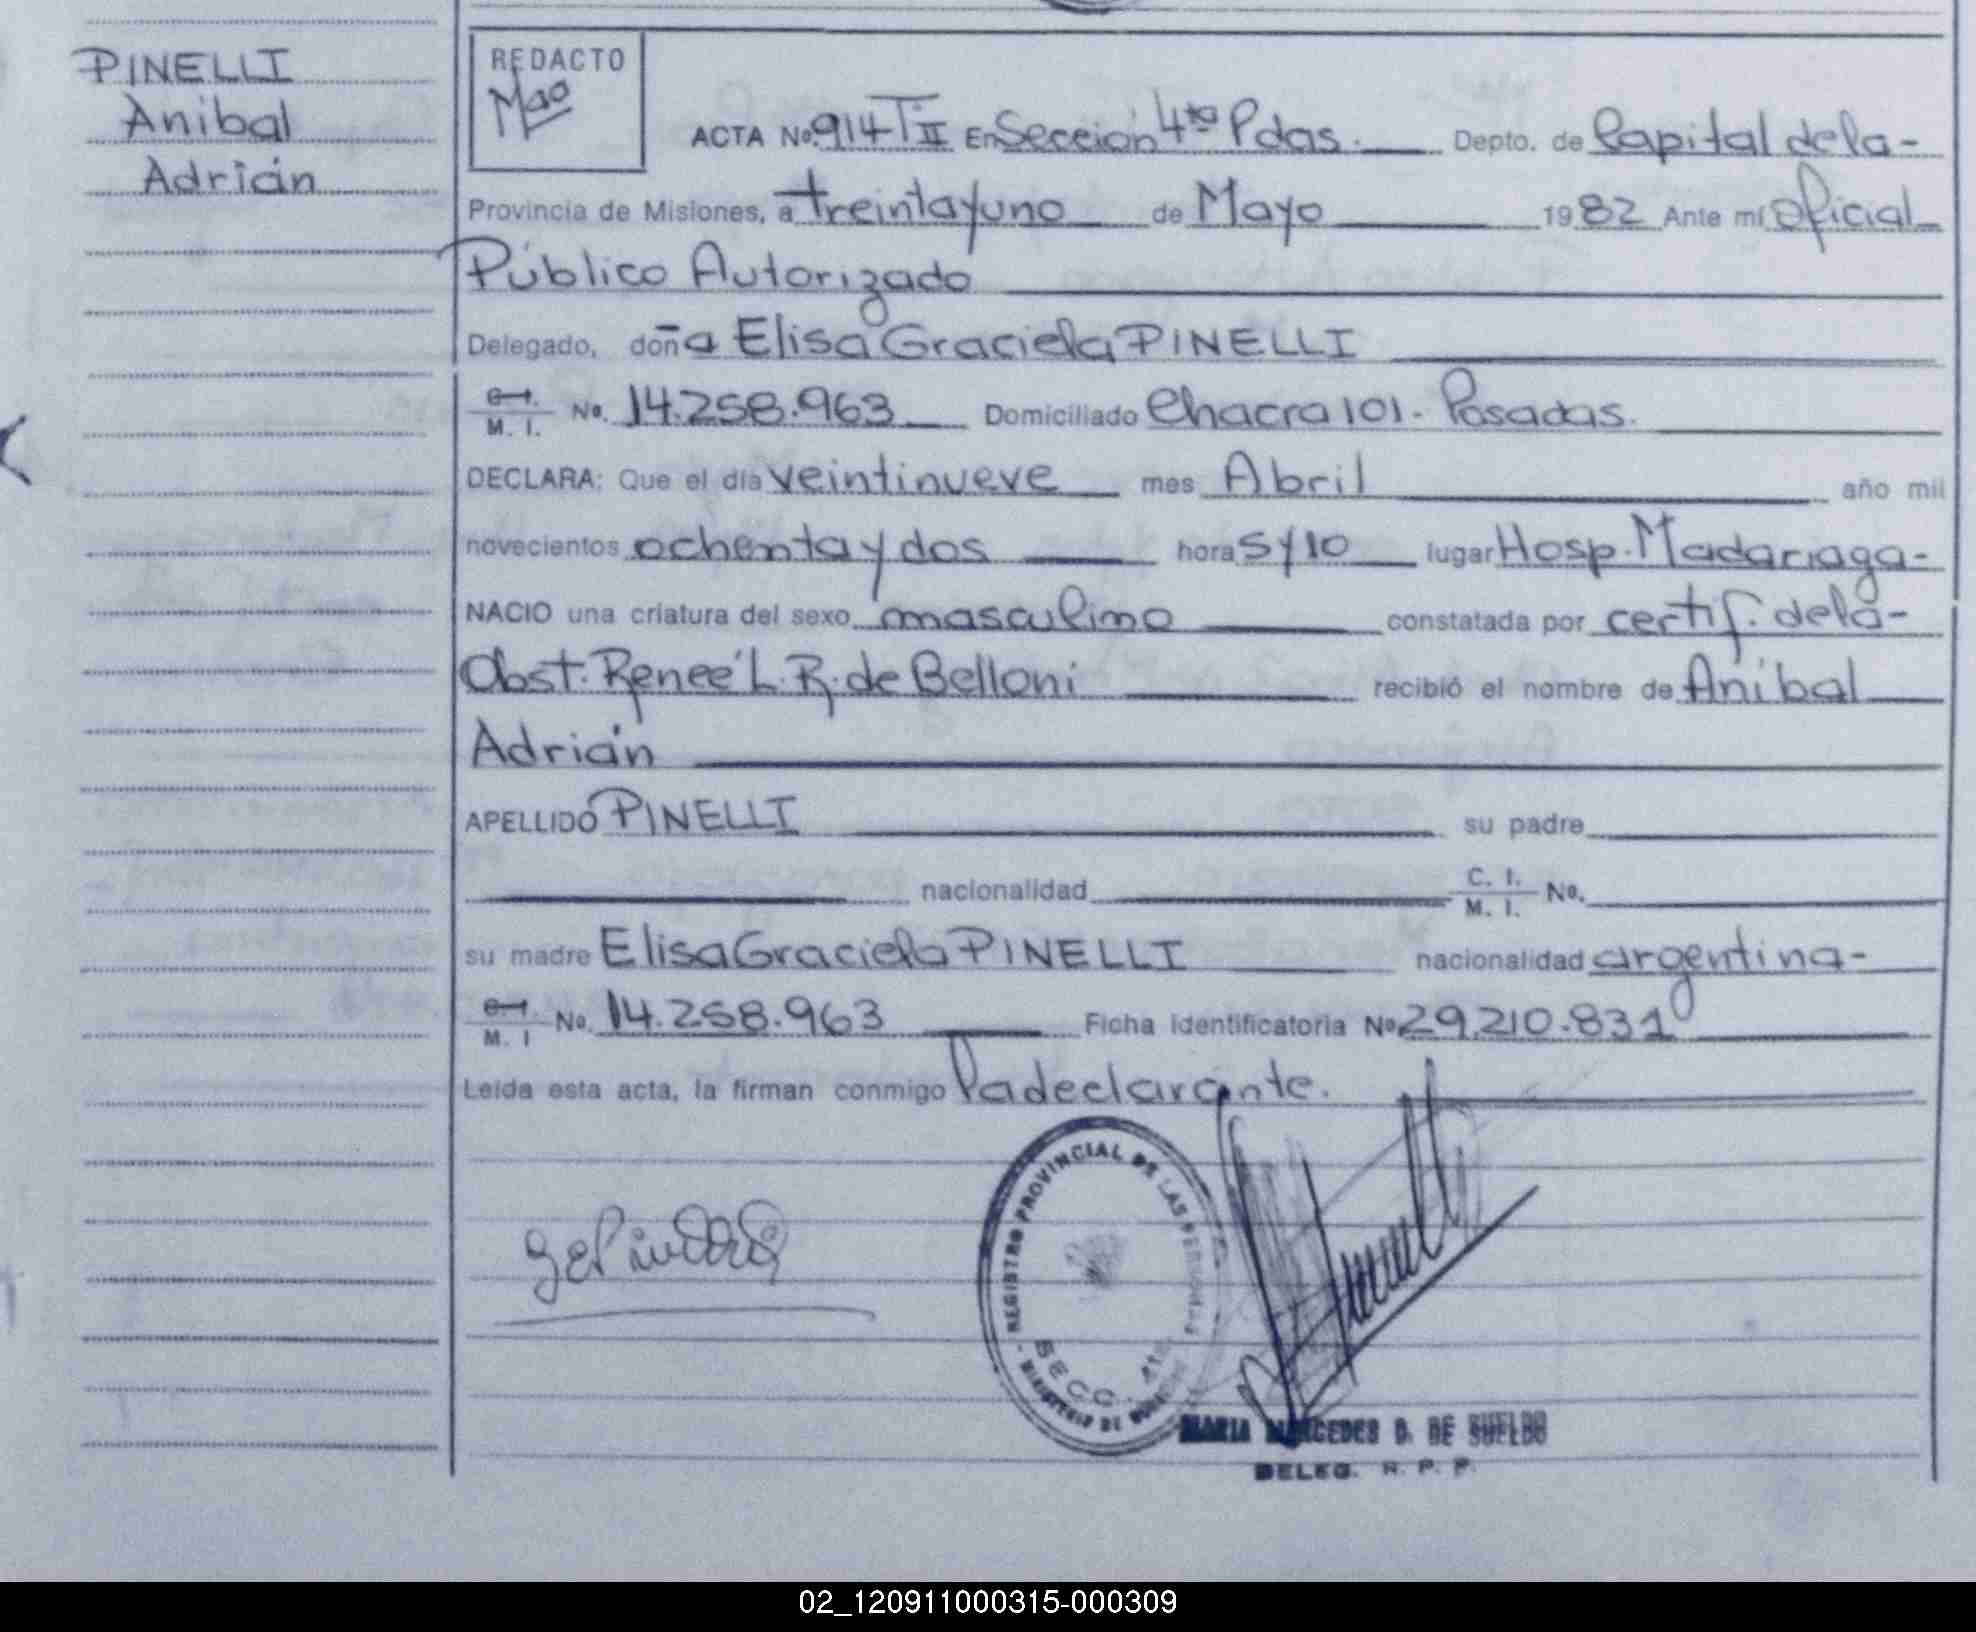 PINELLI
Anibal
Adrián
REDACTO
ACTA No. 914 T: II En Sección 4ta Pdas. Depto. de Capital de la-
Provincia de Misiones, a treinta y uno de Mayo 1982 Ante mí Oficial
Público Autorizado
Delegado, doña Elisa Graciela PINELLI
C. I. M. I. No. 14.258.963 Domiciliado Chacra 101 - Posadas.
DECLARA: Que el día veintinueve mes Abril año mil
novecientos ochenta y dos hora 5 y 10 lugar Hosp. Madariaga-
NACIO una criatura del sexo masculino constatada por certif. de la-
Obst. Reneé L. R. de Belloni recibió el nombre de Anibal
Adrián
APELLIDO PINELLI su padre
nacionalidad C. I. M. I. No.
su madre Elisa Graciela PINELLI nacionalidad argentina-
C. I. M. I No. 14.258.963 Ficha identificatoria No 29.210.831
Leída esta acta, la firman conmigo la declarante.
REGISTRO PROVINCIAL DE LAS PERSONAS
SECC. 4ta
MINISTERIO DE GOBIERNO
MARIA MERCEDES D. DE SUELDO
DELEG. R. P. P.
02_120911000315-000309